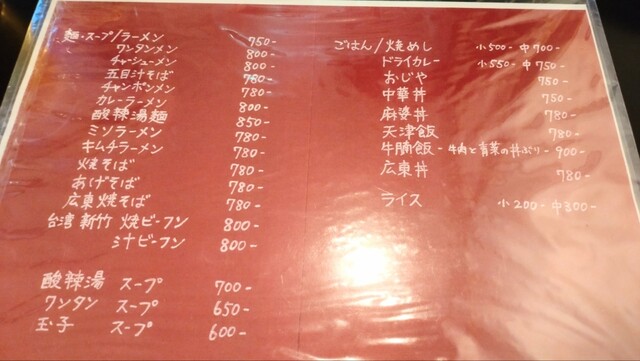 麺・スープ/ラーメン 750-
ワンタンメン 800
チャーシューメン 800-
五目汁そば 780-
チャンポンメン 780-
カレーラーメン 800-
酸辣湯麺 850-
ミソラーメン 780-
キムチラーメン 780-
焼そば 780-
あげそば 780-
広東焼そば 780-
台湾 新竹 焼ビーフン 800-
汁ビーフン 800-
酸辣湯 スープ 700-
ワンタン スープ 650-
玉子 スープ 600-
ごはん/焼めし 小500- 中700-
ドライカレー 小550- 中750-
おじや 750-
中華丼 750-
麻婆丼 780-
天津飯 780-
牛腩飯-牛肉と青菜の丼ぶり- 900-
広東丼 780-
ライス 小200- 中300-